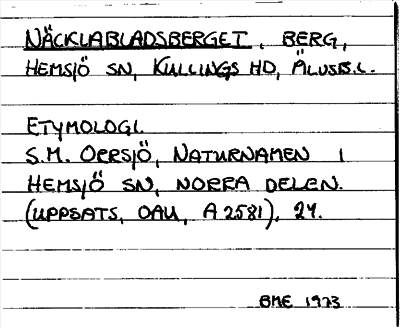 NÄCKLABLADSBERGET, BERG,
HEMSJÖ SN, KULLINGS HD, ÄLVSB.L.
ETYMOLOGI.
S.M. OERSJÖ, NATURNAMEN I
HEMSJÖ SN, NORRA DELEN.
(UPPSATS, OAU, A 2581), 24.
BME 1973